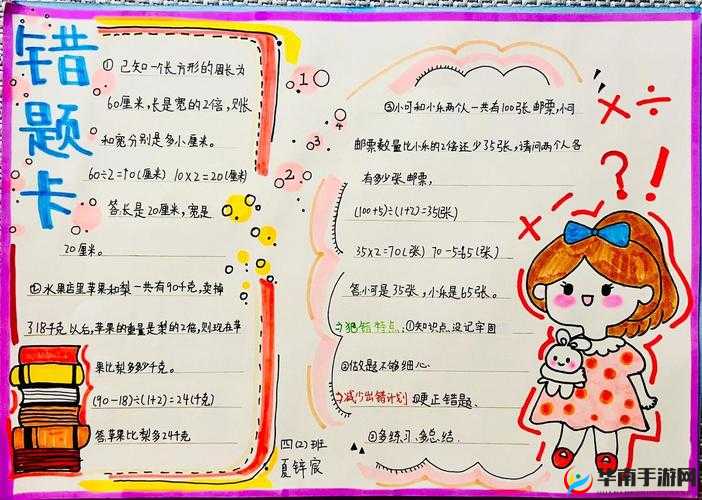 错题卡
①已知一个长方形的周长为
60厘米,长是宽的2倍,则长
和宽分别是多小厘米。
60÷2=10(厘米) 10×2=20(厘米)
答:长是20厘米,宽是
20厘米。
②水果店里苹果和梨一共有90千克,卖掉
了18千克以后,苹果的重量是梨的2倍,则现在苹
果比梨多多少千克。
(90-18)÷(1+2)=24(千克)
答苹果比梨多24千克
1
2
3
4
③小可和小乐两个人一共有100张邮票,小可
邮票数量比小乐的2倍还少35张,请问两个人各
有多少张邮票,
(100+5)÷(1+2)=35(张)
35×2=70(张) 70-5=65(张)
答小可是35张,小乐是65张。
犯错特点:①知识点没记牢固
②做题不够细心
减少出错计划 ①硬正错题、
②多练习、多总结
四(2)班
夏锌宸
×÷
?!
华南手游网